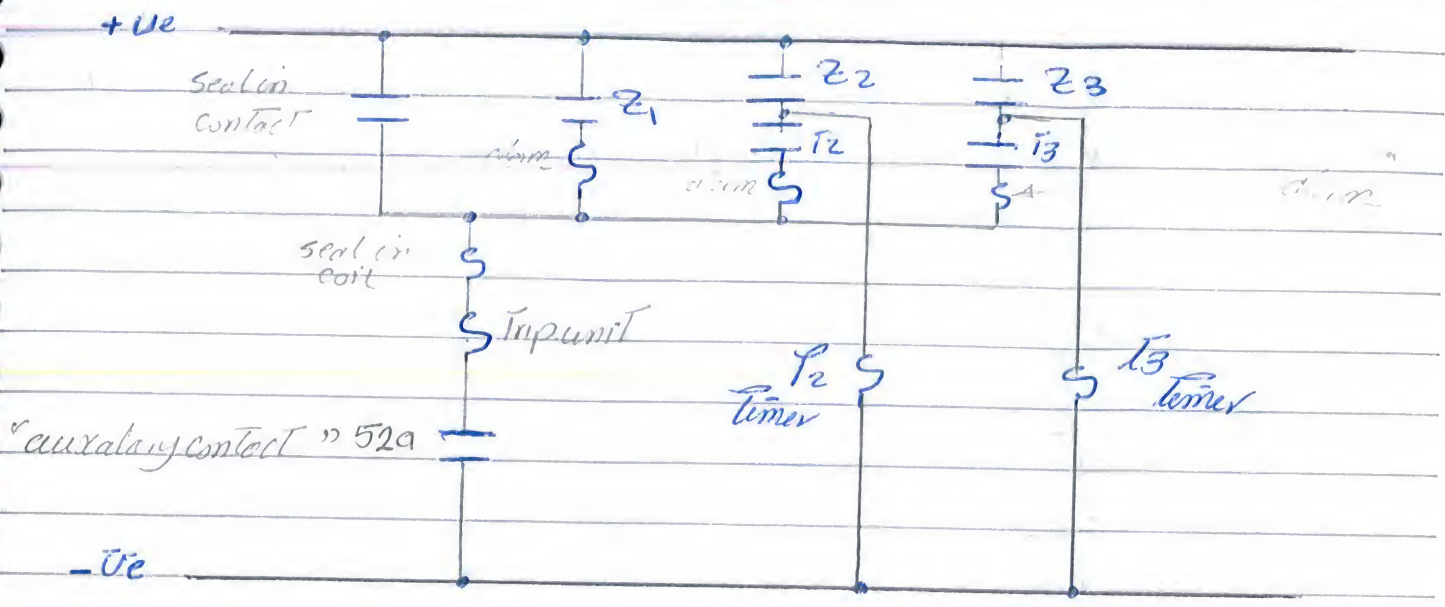 +ve
Seal in
contact
Z1
alarm
Z2
T2
alarm
Z3
T3
A
alarm
seal in
coil
Trip unit
T2
timer
T3
timer
"auxalary contact" 52a
-ve